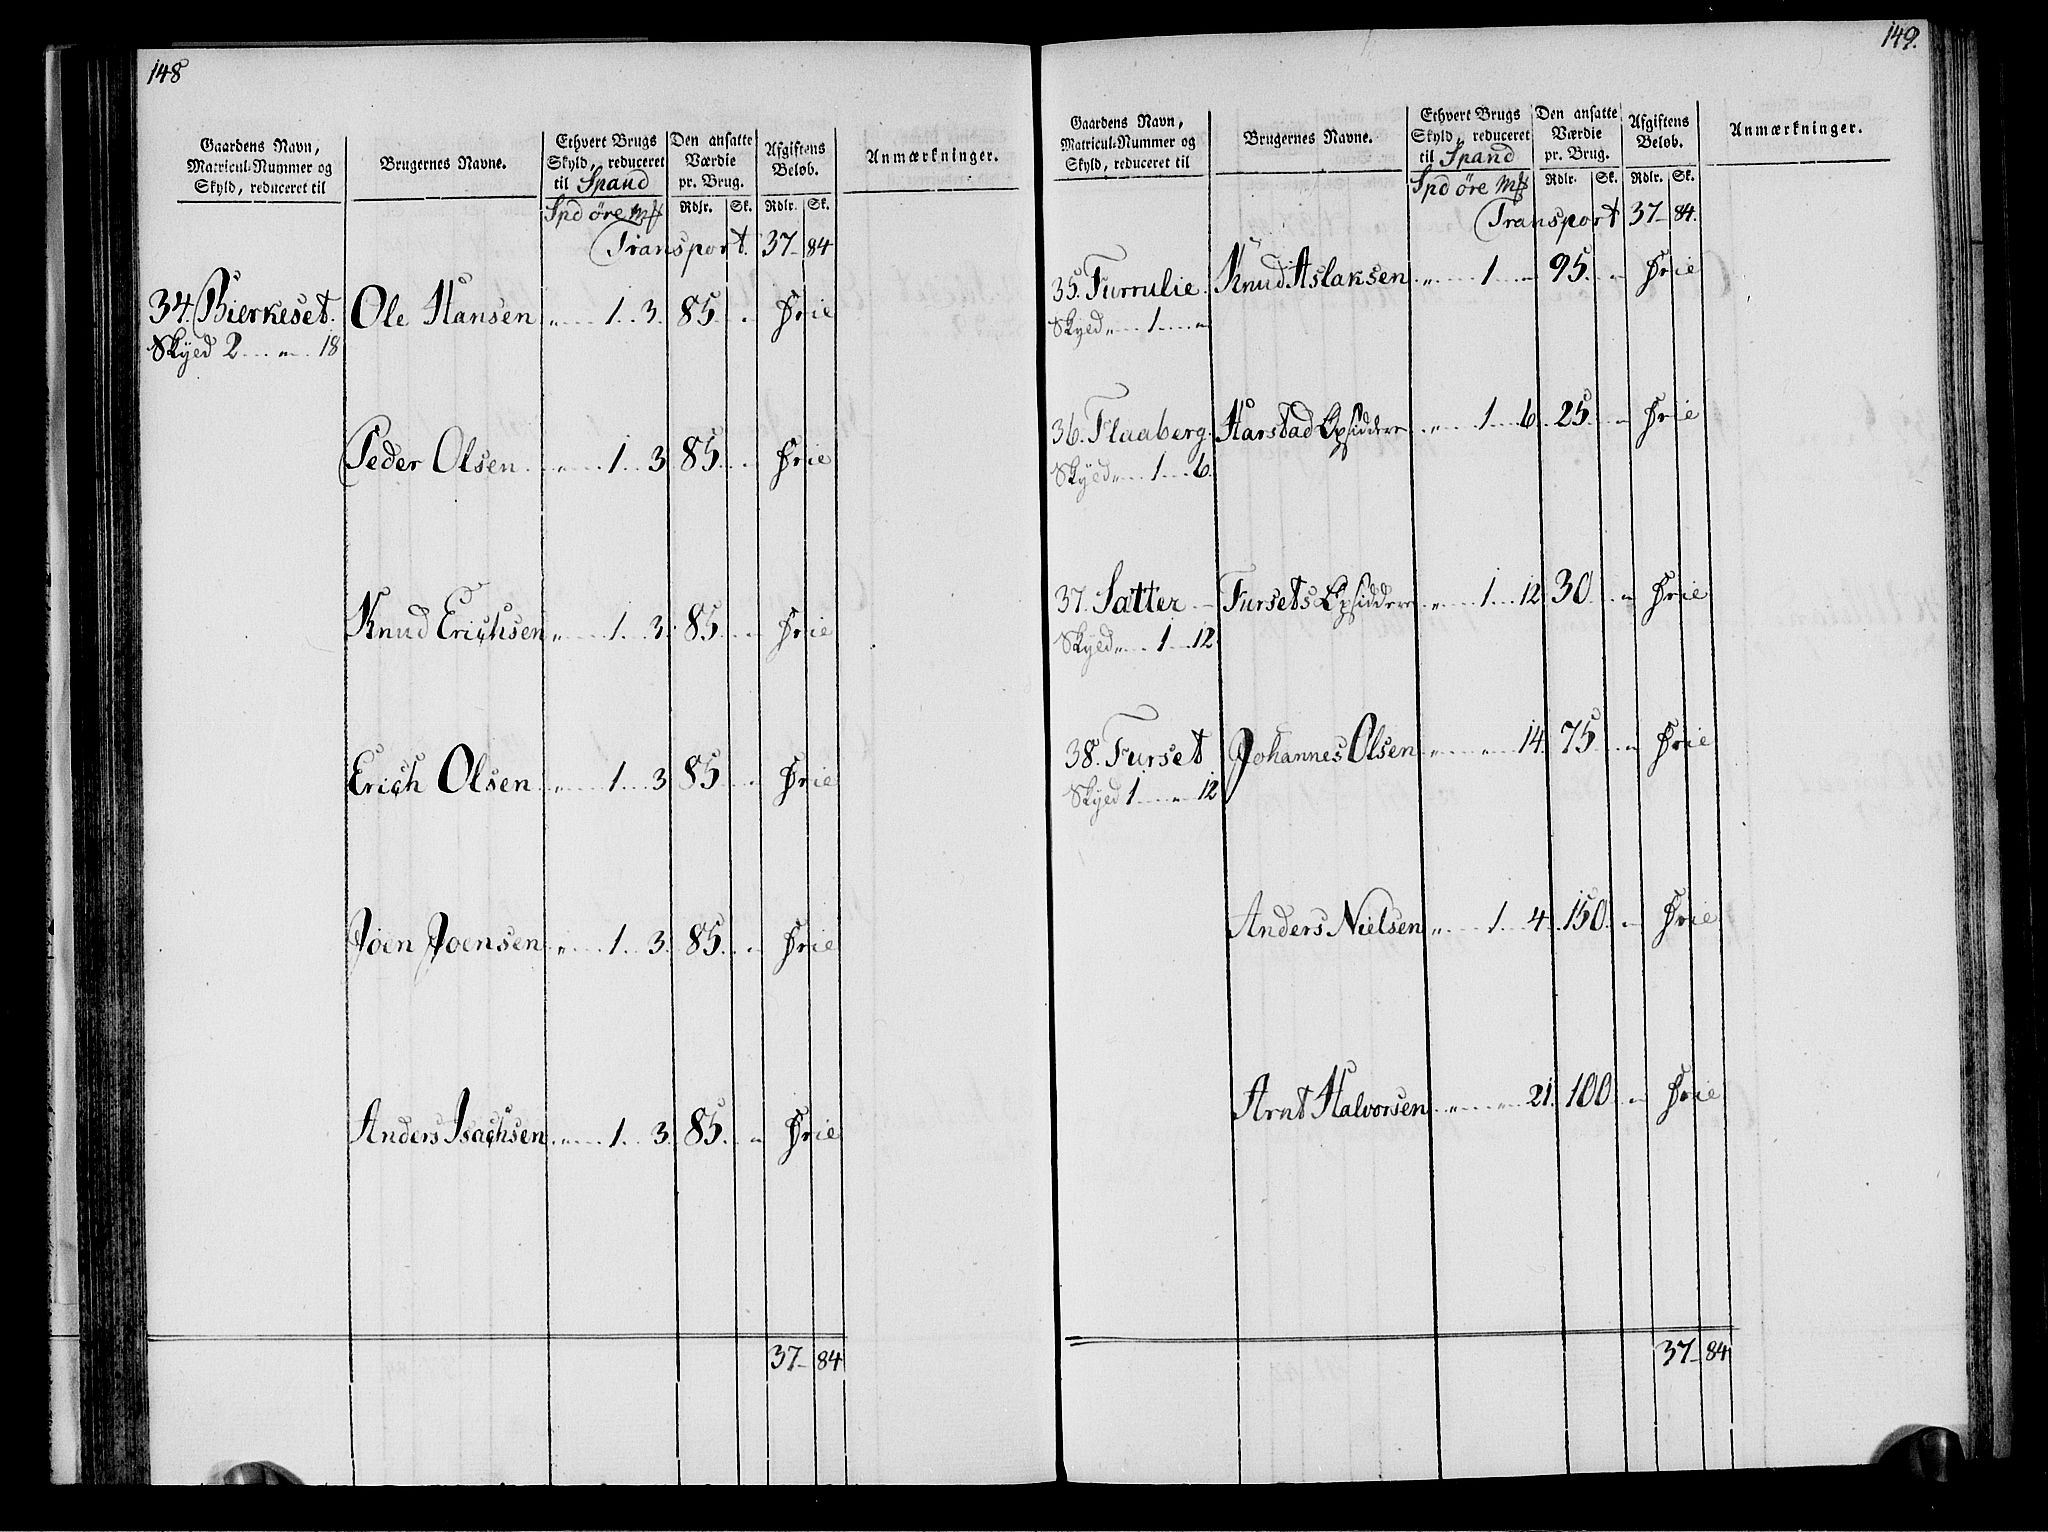 148
Gaardens Navn, Matricul-Nummer og Skyld, reduceret til
Brugernes Navne.
Ethvert Brugs Skyld, reduceret til Spand
Den ansatte Værdie pr. Brug.
Afgiftens Beløb.
Anmærkninger.
Spd öre Rdlr. Sk. Rdlr. Sk.
Transport. 37 84
34. Bierkeset. Ole Hansen „ 1 3 85 „ Frie
Skyld 2 „ 18
Peder Olsen „ 1 3 85 „ Frie
Knud Erichsen „ 1 3 85 „ Frie
Erich Olsen „ 1 3 85 „ Frie
Joen Joensen „ 1 3 85 „ Frie
Anders Isachsen „ 1 3 85 „ Frie
37 84
149.
Gaardens Navn, Matricul-Nummer og Skyld, reduceret til
Brugernes Navne.
Ethvert Brugs Skyld, reduceret til Spand
Den ansatte Værdie pr. Brug.
Afgiftens Beløb.
Anmærkninger.
Spd öre Rdlr. Sk. Rdlr. Sk.
Transport 37 84.
35. Furrulie. Knud Aslaksen „ 1 „ 95 „ Frie
Skyld „ 1 „
36. Flaaberg. Harstad Opsiddere „ 1 6 25 „ Frie
Skyld „ 1 6.
37. Satter Fursets Opsiddere „ 1 12 30 „ Frie
Skyld „ 1 12
38. Furset Johannes Olsen „ „ 14 75 „ Frie
Skyld 1 „ 12
Anders Nielsen „ 1 4 150 „ Frie
Arnt Halvorsen „ „ 21 100 „ Frie
37 84